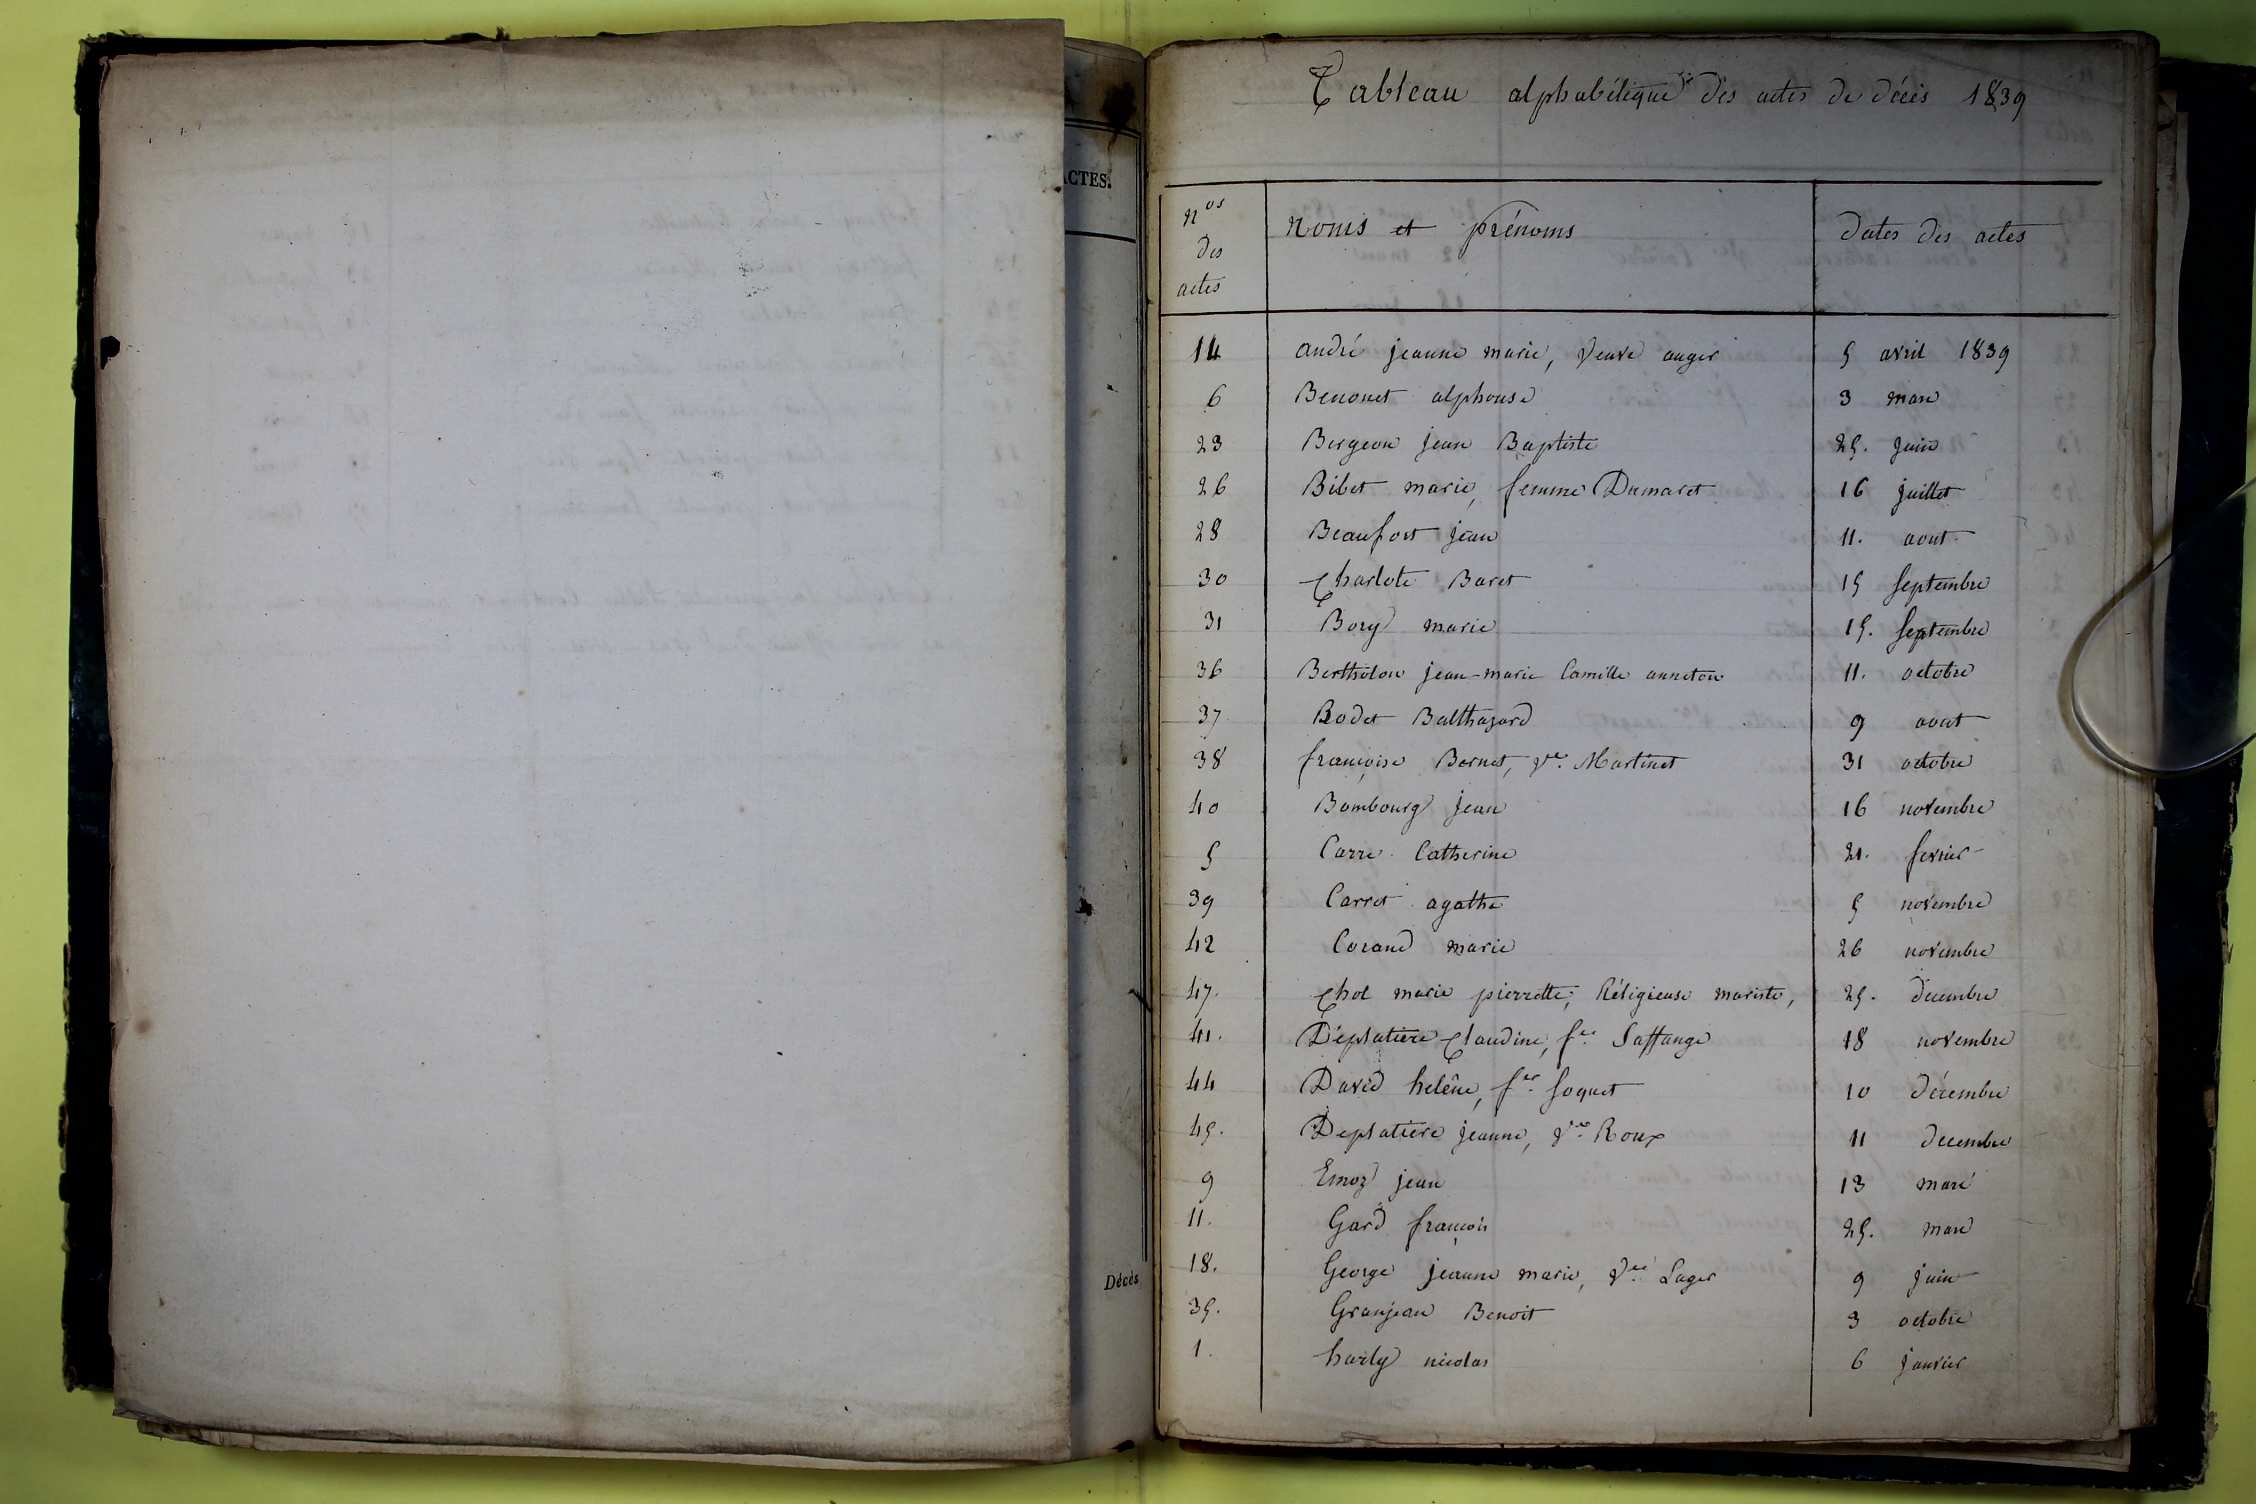 ACTES.
Décès
Tableau alphabétique des actes de décès 1839
nos des actes | noms et prénoms | Dates des actes
14 | andré jeanne marie, Veuve auger | 5 avril 1839
6 | Benonet alphonse | 3 mars
23 | Bergeon jean Baptiste | 25. juin
26 | Bibet marie, femme Dumaret | 16 juillet
28 | Beaufort jean | 11. aout
30 | Charlote Baret | 15 septembre
31 | Bory marie | 15. septembre
36 | Bertholon jean-marie Camille anneton | 11. octobre
37 | Bodet Balthazard | 9 aout
38 | françoise Bernet, Vve. Martinet | 31 octobre
40 | Bombourg jean | 16 novembre
5 | Carre Catherine | 21. fevrier
39 | Carret agathe | 5 novembre
42 | Corand marie | 26 novembre
47. | Chol marie pierrette, Réligieuse mariste, | 25. décembre
41. | Déplatière Claudine, fe. Saffange | 18 novembre
44 | David helêne, fe. foquet | 10 décembre
45. | Deplatiere jeanne, Vve. Roux | 11 decembre
9 | Emoz jean | 13 mars
11. | Gard françois | 25. mars
18. | George jeanne marie, Vve. Lager | 9 juin
35. | Granjean Benoit | 3 octobre
1. | harly nicolas | 6 janvier